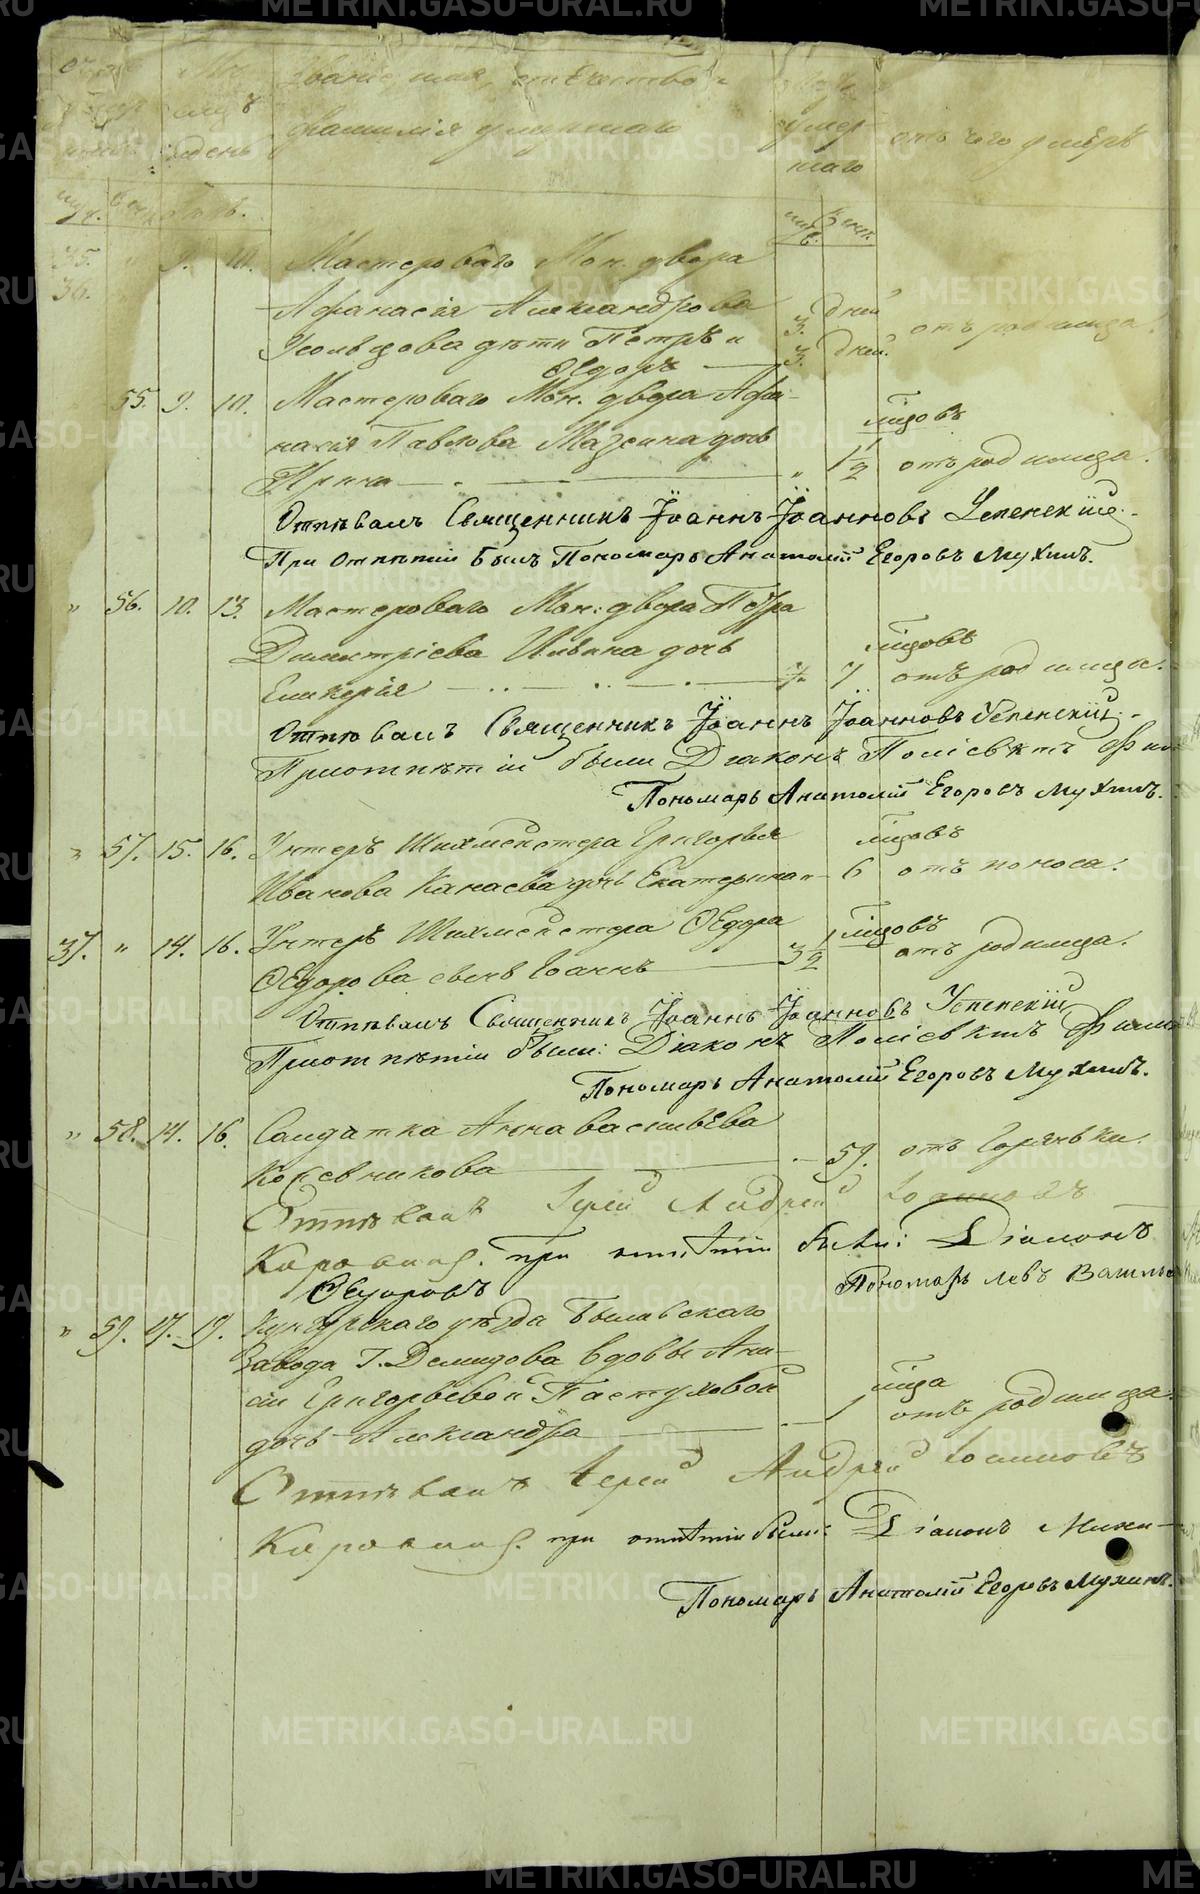 Званіе, имя, отчество и
фамилія умершаго
умер-
шаго
отъ чего умеръ
день
муж.
35. 9. 10. Мастероваго Мон. двора
36. Афанасія Александрова 3. дней
Усольцова дѣти Петръ и 3. дней. отъ родимца.
Ѳедоръ
55. 9. 10. Мастероваго Мон. двора Афа-
насія Павлова дочь мѣсяцовъ
Ирина " 1 1/2 отъ родимца.
Отпѣвалъ Священникъ Іоаннъ Іоанновъ Успенскій.
При отпѣтіи былъ Пономарь Анатолій Егоровъ Мухинъ.
" 56. 10. 13. Мастероваго Мон. двора Петра
Димитріева Ильина дочь мѣсяцовъ
Гликерія 7 отъ родимца.
Отпѣвалъ Священникъ Іоаннъ Іоанновъ Успенскій.
При отпѣтіи были Діаконъ Поліевктъ
Пономарь Анатолій Егоровъ Мухинъ.
" 57. 15. 16. Унтеръ Шихмейстера Григорья мѣсяцовъ
Иванова Канаева дочь Екатерина " 6 отъ поноса.
37. " 14. 16. Унтеръ Шихмейстера Ѳедора мѣсяцовъ
Ѳедорова сынъ Іоаннъ 3 1/2 отъ родимца.
Отпѣвалъ Священникъ Іоаннъ Іоанновъ Успенскій
При отпѣтіи были: Діаконъ Поліевктъ
Пономарь Анатолій Егоровъ Мухинъ.
" 58. 14. 16. Солдатка Анна Васильева
Кожевникова 59. отъ Горячки.
Отпѣвалъ Іерей Андрей Іоанновъ
при отпѣтіи были: Діаконъ
Ѳедоровъ Пономарь Левъ
" 59. 17. 19. Кунгурскаго уѣзда
завода Г. Демидова вдовы Ани-
сіи Григорьевой Пастуховой мѣсяца
дочь Александра 1 отъ родимца.
Отпѣвалъ Іерей Андрей Іоанновъ
при отпѣтіи были: Діаконъ
Пономарь Анатолій Егоровъ Мухинъ.
METRIKI.GASO-URAL.RU